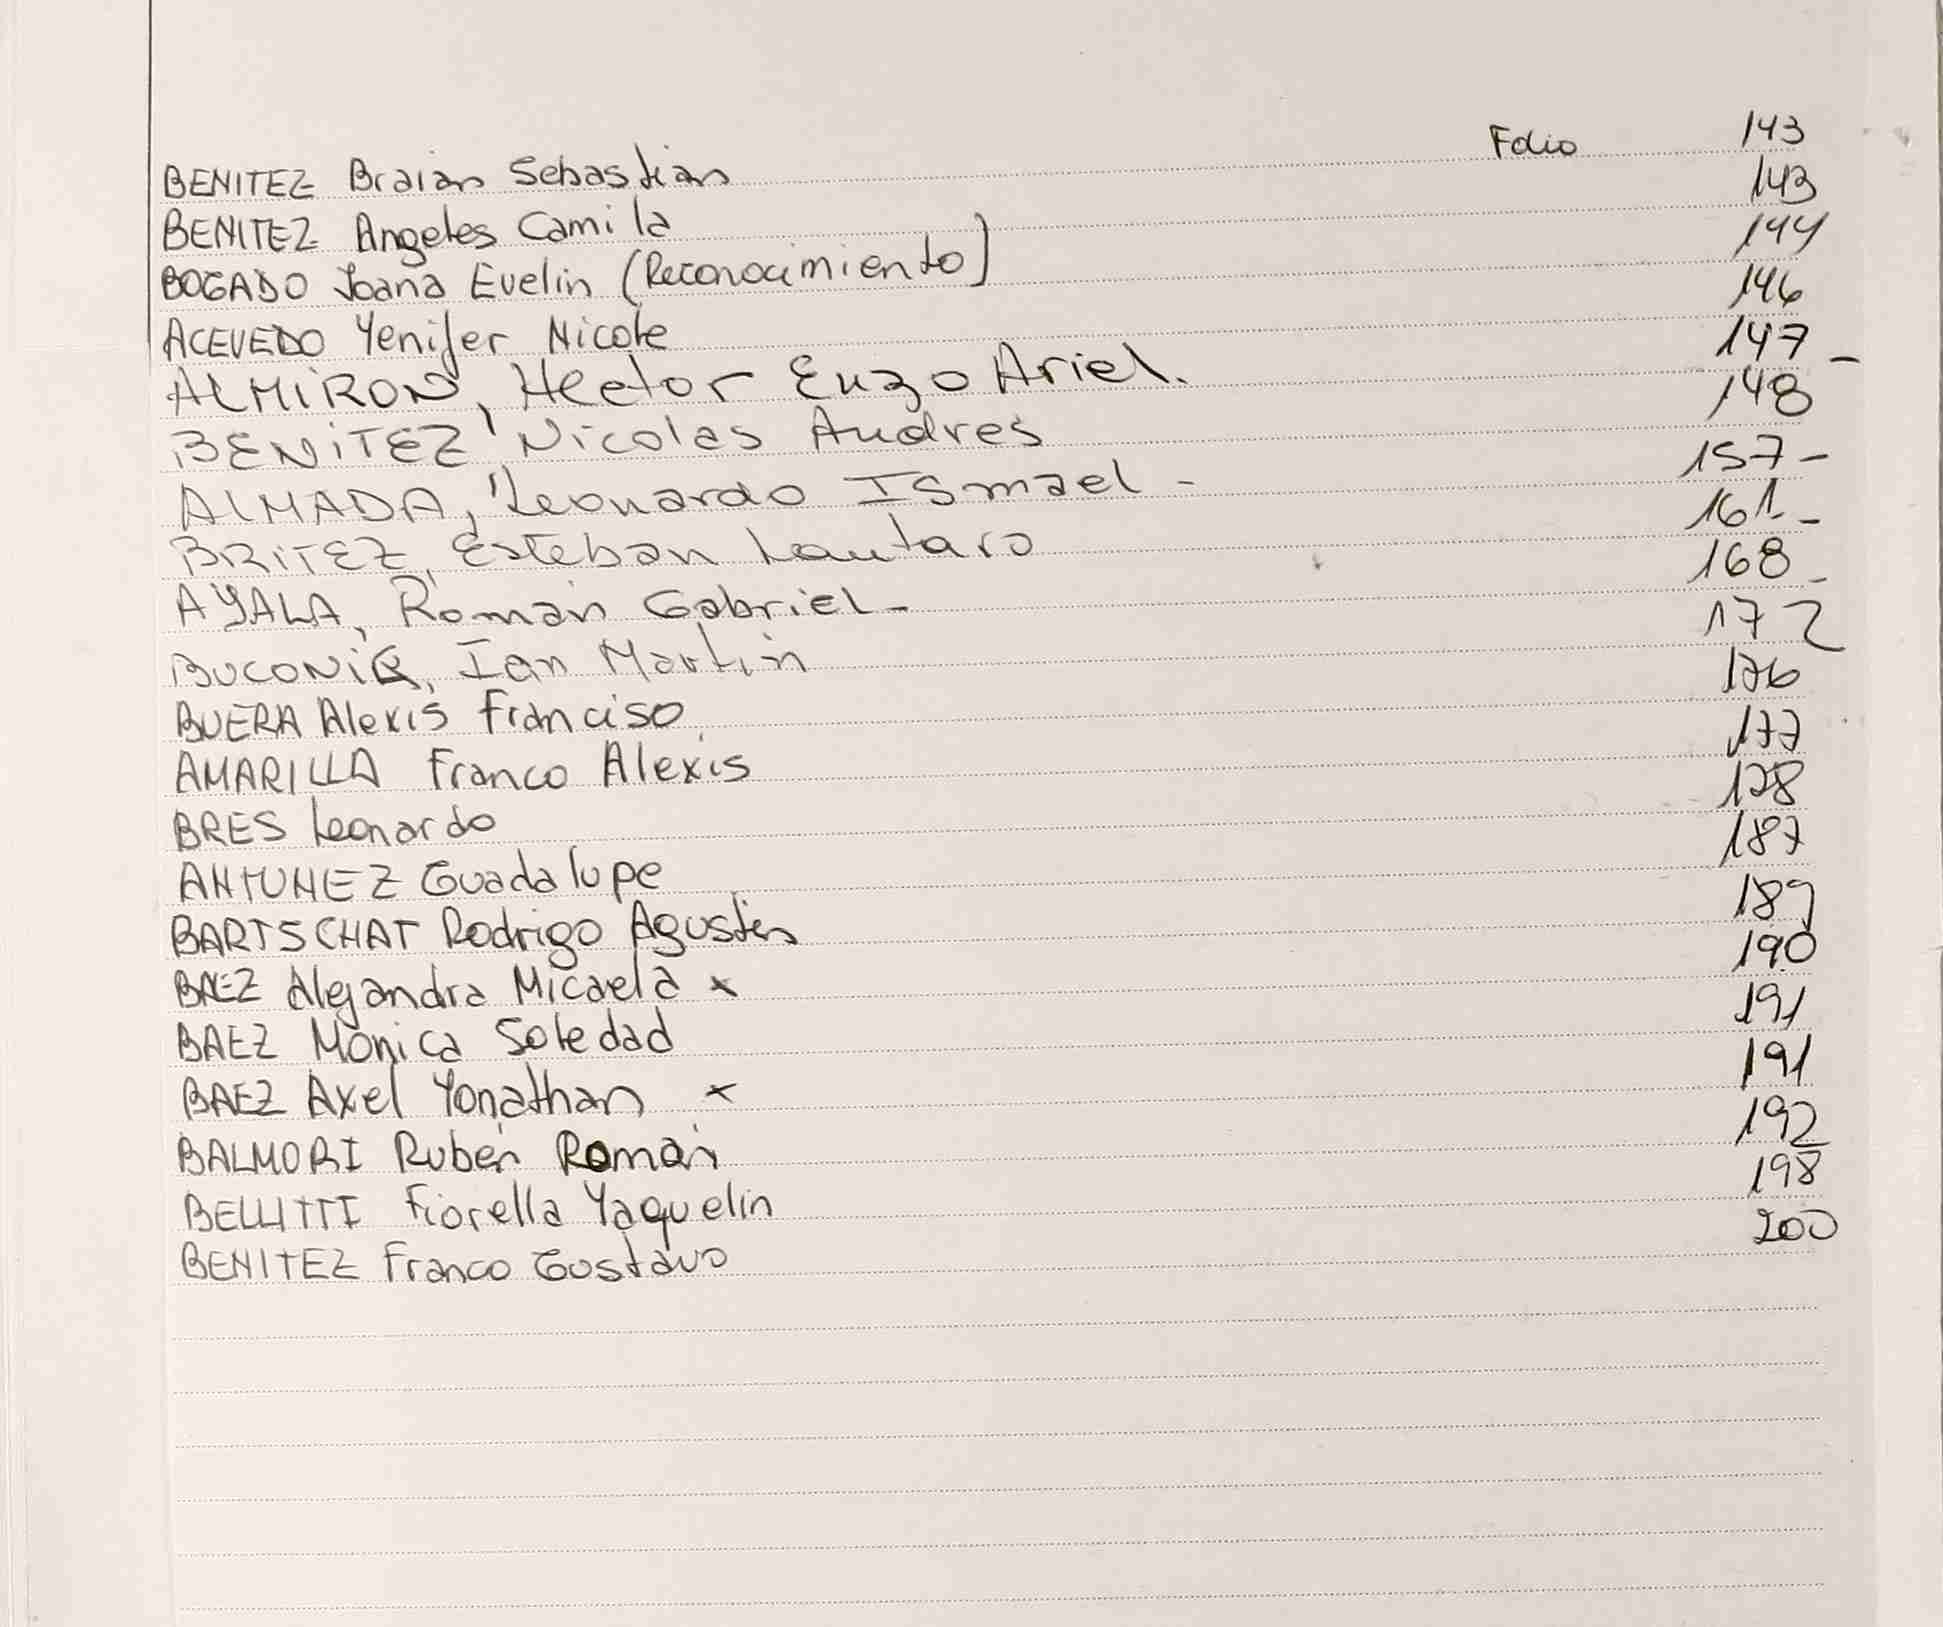 BENITEZ Braian Sebastian Folio 143
BENITEZ Angeles Camila 143
BOGADO Yoana Evelin (Reconocimiento) 144
ACEVEDO Yenifer Nicole 146
ALMIRON, Hector Enzo Ariel. 147 -
BENITEZ, Nicolas Andres 148
ALMADA, Leonardo Ismael - 157 -
BRITEZ, Esteban Lautaro 161 -
AYALA, Román Gabriel - 168 -
Ian Martin 172
BUERA Alexis Franciso 176
AMARILLA Franco Alexis 177
BRES Leonardo 178
ANTUNEZ Guadalupe 187
BARTSCHAT Rodrigo Agustín 189
BAEZ Alejandra Micaela x 190
BAEZ Mónica Soledad 191
BAEZ Axel Yonathan x 191
BALMORI Rubén Román 192
BELLITTI Fiorella Yaquelin 198
BENITEZ Franco Gustavo 200